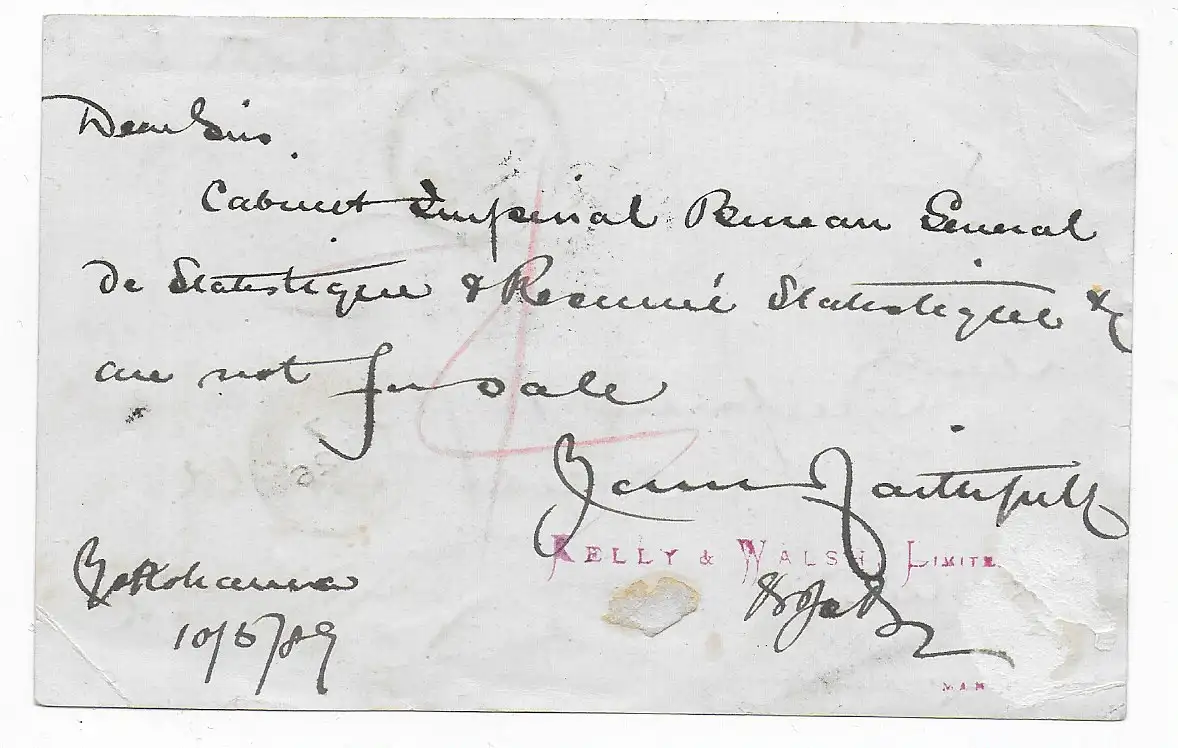 Dear Sirs.
Cabinet Imperial Bureau General
De Statistique & Resumé Statistique &c
are not for sale
Yours Faithfully
KELLY & WALSH, LIMITE
Yokohama
10/5/89